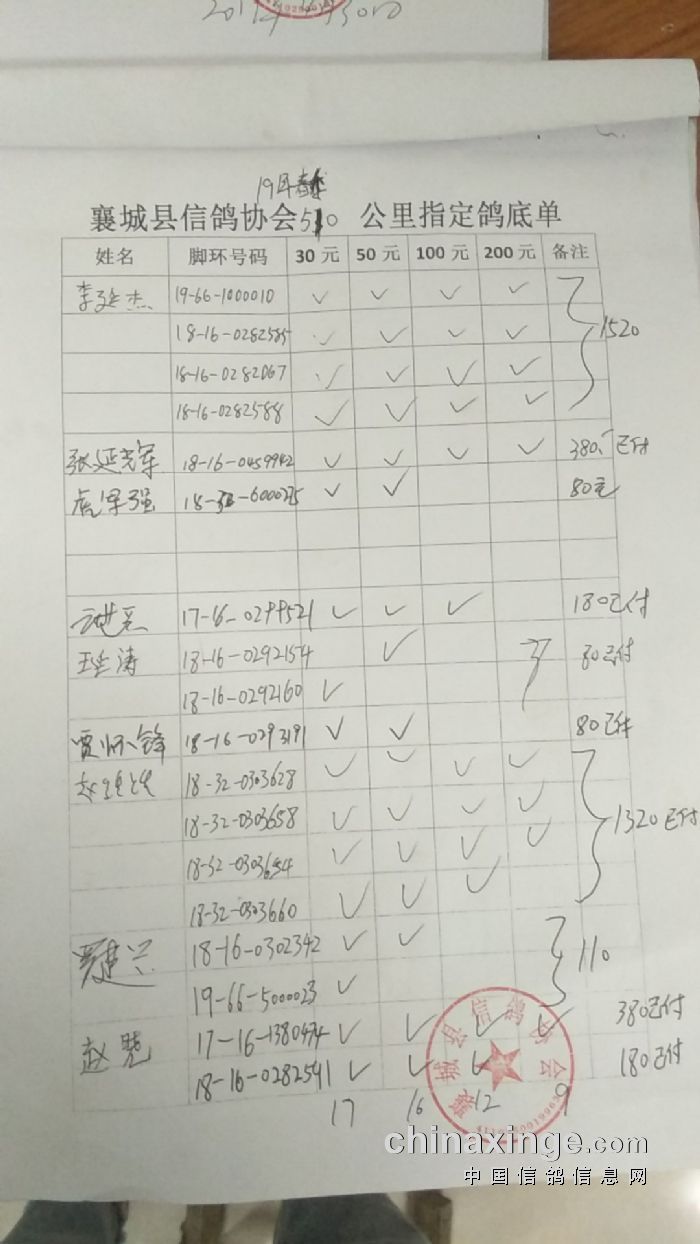 19年春
襄城县信鸽协会510 公里指定鸽底单
姓名 脚环号码 30 元 50 元 100 元 200 元 备注
李延杰 19-66-1000010 ✓ ✓ ✓ ✓
18-16-0282585 ✓ ✓ ✓ ✓ 1520
18-16-0282067 ✓ ✓ ✓ ✓
18-16-0282588 ✓ ✓ ✓ ✓
张延军 18-16-0459942 ✓ ✓ ✓ ✓ 380 已付
虎军强 ✓ ✓ 80元
17-16-0299521 ✓ ✓ ✓ 180已付
涛 18-16-0292154 ✓ 80已付
18-16-0292160 ✓
贾怀锋 18-16-0293191 ✓ ✓ 80已付
18-32-0303628 ✓ ✓ ✓ ✓
18-32-0303658 ✓ ✓ ✓ ✓ 1320已付
18-32-0303654 ✓ ✓ ✓ ✓
18-32-0303660 ✓ ✓ ✓
18-16-0302342 ✓ ✓ 110
19-66-5000023 ✓
赵 17-16-1380474 ✓ ✓ ✓ ✓ 380已付
18-16-0282591 ✓ ✓ ✓ 180已付
17 16 12 9
襄城县信鸽协会
chinaxinge.com
中国信鸽信息网